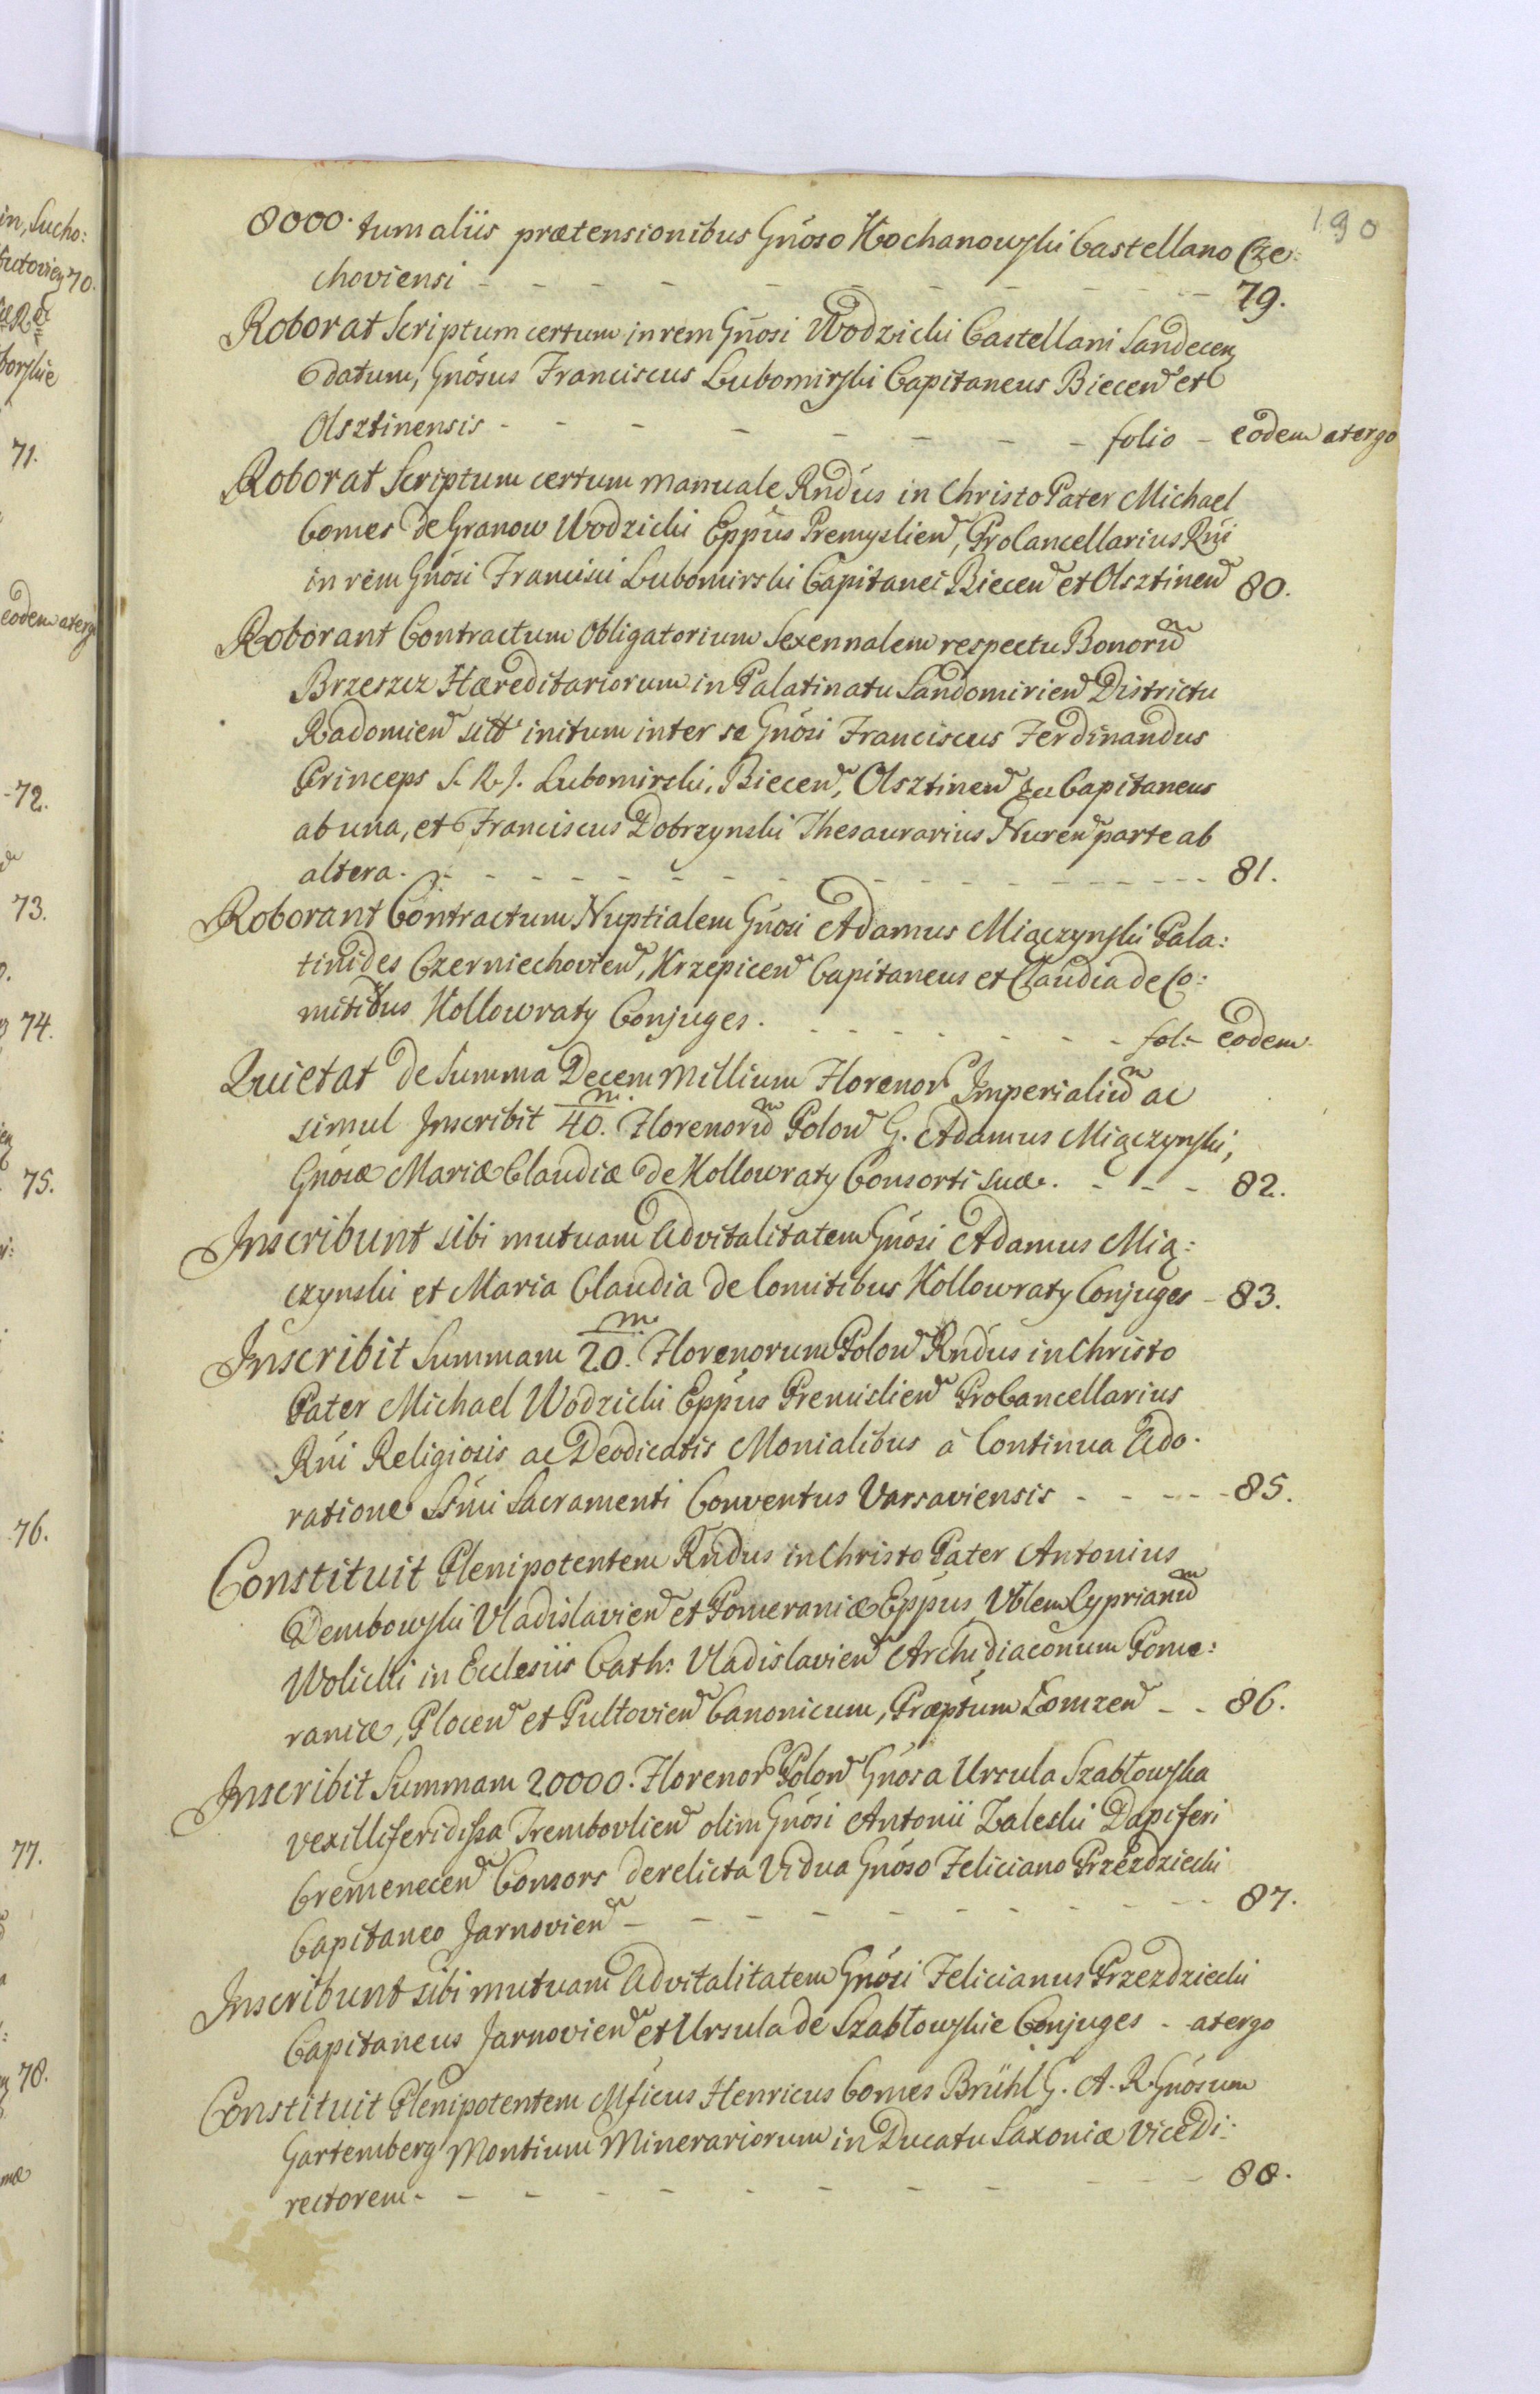 190
8000. tum aliis prætensionibus Gnoso Kochanowski Castellano Cze:
choviensi - - - - - - - - - 79.
Roborat Scriptum certum in rem Gnosi Wodzicki Castellani Sandecen
datum, Gnosus Franciscus Lubomirski Capitaneus Biecen et
Olsztinensis - - - - - - - folio - eodem atergo
Roborat Scriptum certum manuale Rndus in Christo Pater Michael
Comes de Granow Wodzicki Eppus Premyslien, ProCancellarius Rni
in rem Gnosi Francisci Lubomirski Capitanei Biecen et Olsztinen 80.
Roborant Contractum Obligatorium Sexennalem respectu Bonorum
Brzeszcz Hæreditariorum in Palatinatu Sandomirien Districtu
Radomien sitt initum inter se Gnosi Franciscus Ferdinandus
Princeps S. R. J. Lubomirski, Biecen, Olsztinen &c Capitaneus
ab una, et Franciscus Dobrzynski Thesaurarius Nuren parte ab
altera. - - - - - - - - - - 81.
Roborant Contractum Nuptialem Gnosi Adamus Miączynski Pala:
tinides Czerniechovien, Krzepicen Capitaneus et Claudia de Co:
mitibus Kollowraty Conjuges. - - - - - fol:- eodem
Quietat de Summa Decem Millium Florenor Imperialium ac
simul Inscribit 40. m. Florenorum Polon G. Adamus Miączynski,
Gnosæ Mariæ Claudiæ de Kollowraty Consorti suæ. - - - 82.
Inscribunt sibi mutuam Advitalitatem Gnosi Adamus Mią:
czynski et Maria Claudia de Comitibus Kollowraty Conjuges - 83.
Inscribit Summam 20. m. Florenorum Polon Rndus in Christo
Pater Michael Wodzicki Eppus Premislien ProCancellarius
Rni Religiosis ac Deodicatis Monialibus à Continua Ado.
ratione SSmi Sacramenti Conventus Varsaviensis - - - - 85.
Constituit Plenipotentem Rndus in Christo Pater Antonius
Dembowski Vladislavien et Pomeraniæ Eppus Vblem Cyprianum
Wolicki in Ecclesiis Cath: Vladislavien Archidiaconum Pome:
raniæ, Plocen et Pultovien Canonicum, Præptum Łomzen - - 86.
Inscribit Summam 20000. Florenor Polon Gnosa Ursula Szabłowska
Vexilliferidissa Trembovlien olim Gnosi Antonii Zaleski Dapiferi
Cremenecen Consors derelicta Vidua Gnoso Feliciano Przezdziecki
Capitaneo Jarnovien - - - - - - - - 87.
Inscribunt sibi mutuam Advitalitatem Gnosi Felicianus Przezdziecki
Capitaneus Jarnovien et Ursula de Szabłowskie Conjuges - atergo
Constituit Plenipotentem Mficus Henricus Comes Brühl G. A. R. Gnosum
Gartemberg Montium Minerariorum in Ducatu Saxoniæ Vicedi:
rectorem - - - - - - - - - 88.
in, Sucho:
70.
71.
eodem atergo
72.
73.
74.
75.
76.
77.
78.